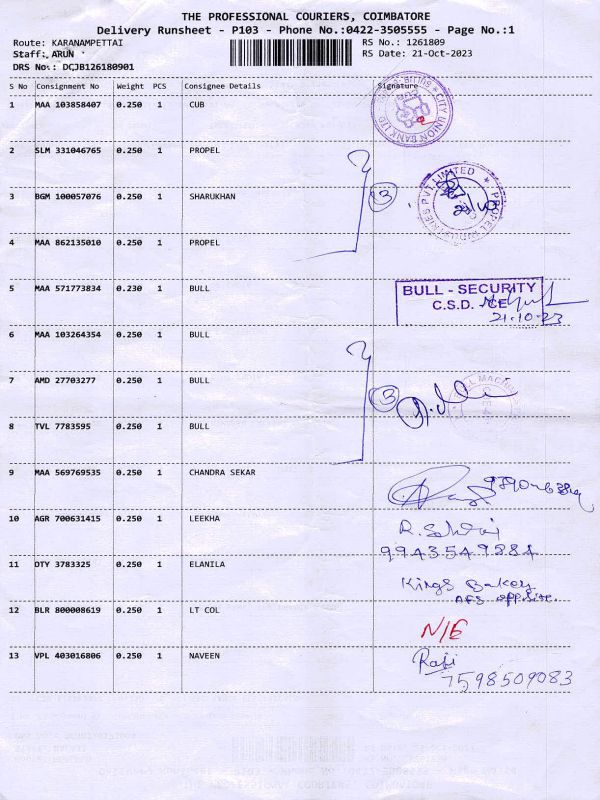 THE PROFESSIONAL COURIERS, COIMBATORE
Delivery Runsheet - P103 - Phone No.:0422-3505555 - Page No.:1
Route: KARANAMPETTAI RS No.: 1261809
Staff: ARUN RS Date: 21-Oct-2023
DRS No.: DCJB126180901
S No Consignment No Weight PCS Consignee Details Signature
1 MAA 103858407 0.250 1 CUB
CITY UNION BANK LTD
2 SLM 331046765 0.250 1 PROPEL
3 BGM 100057076 0.250 1 SHARUKHAN 3
4 MAA 862135010 0.250 1 PROPEL
5 MAA 571773834 0.230 1 BULL BULL - SECURITY
C.S.D.
21.10.23
6 MAA 103264354 0.250 1 BULL
7 AMD 27703277 0.250 1 BULL 3
8 TVL 7783595 0.250 1 BULL
9 MAA 569769535 0.250 1 CHANDRA SEKAR
10 AGR 700631415 0.250 1 LEEKHA
9943549884
11 OTY 3783325 0.250 1 ELANILA Kings Bakery
AFS opposite.
12 BLR 800008619 0.250 1 LT COL N/E
13 VPL 403016806 0.250 1 NAVEEN Rafi
7598509083